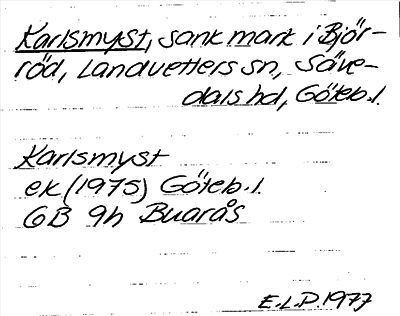 Karlsmyst, sank mark i Björ-
röd, Landvetters sn, Säve-
dals hd, Göteb. l.
Karlsmyst
ek (1975) Göteb. l.
6B 9h Buarås
E.L.P. 1977